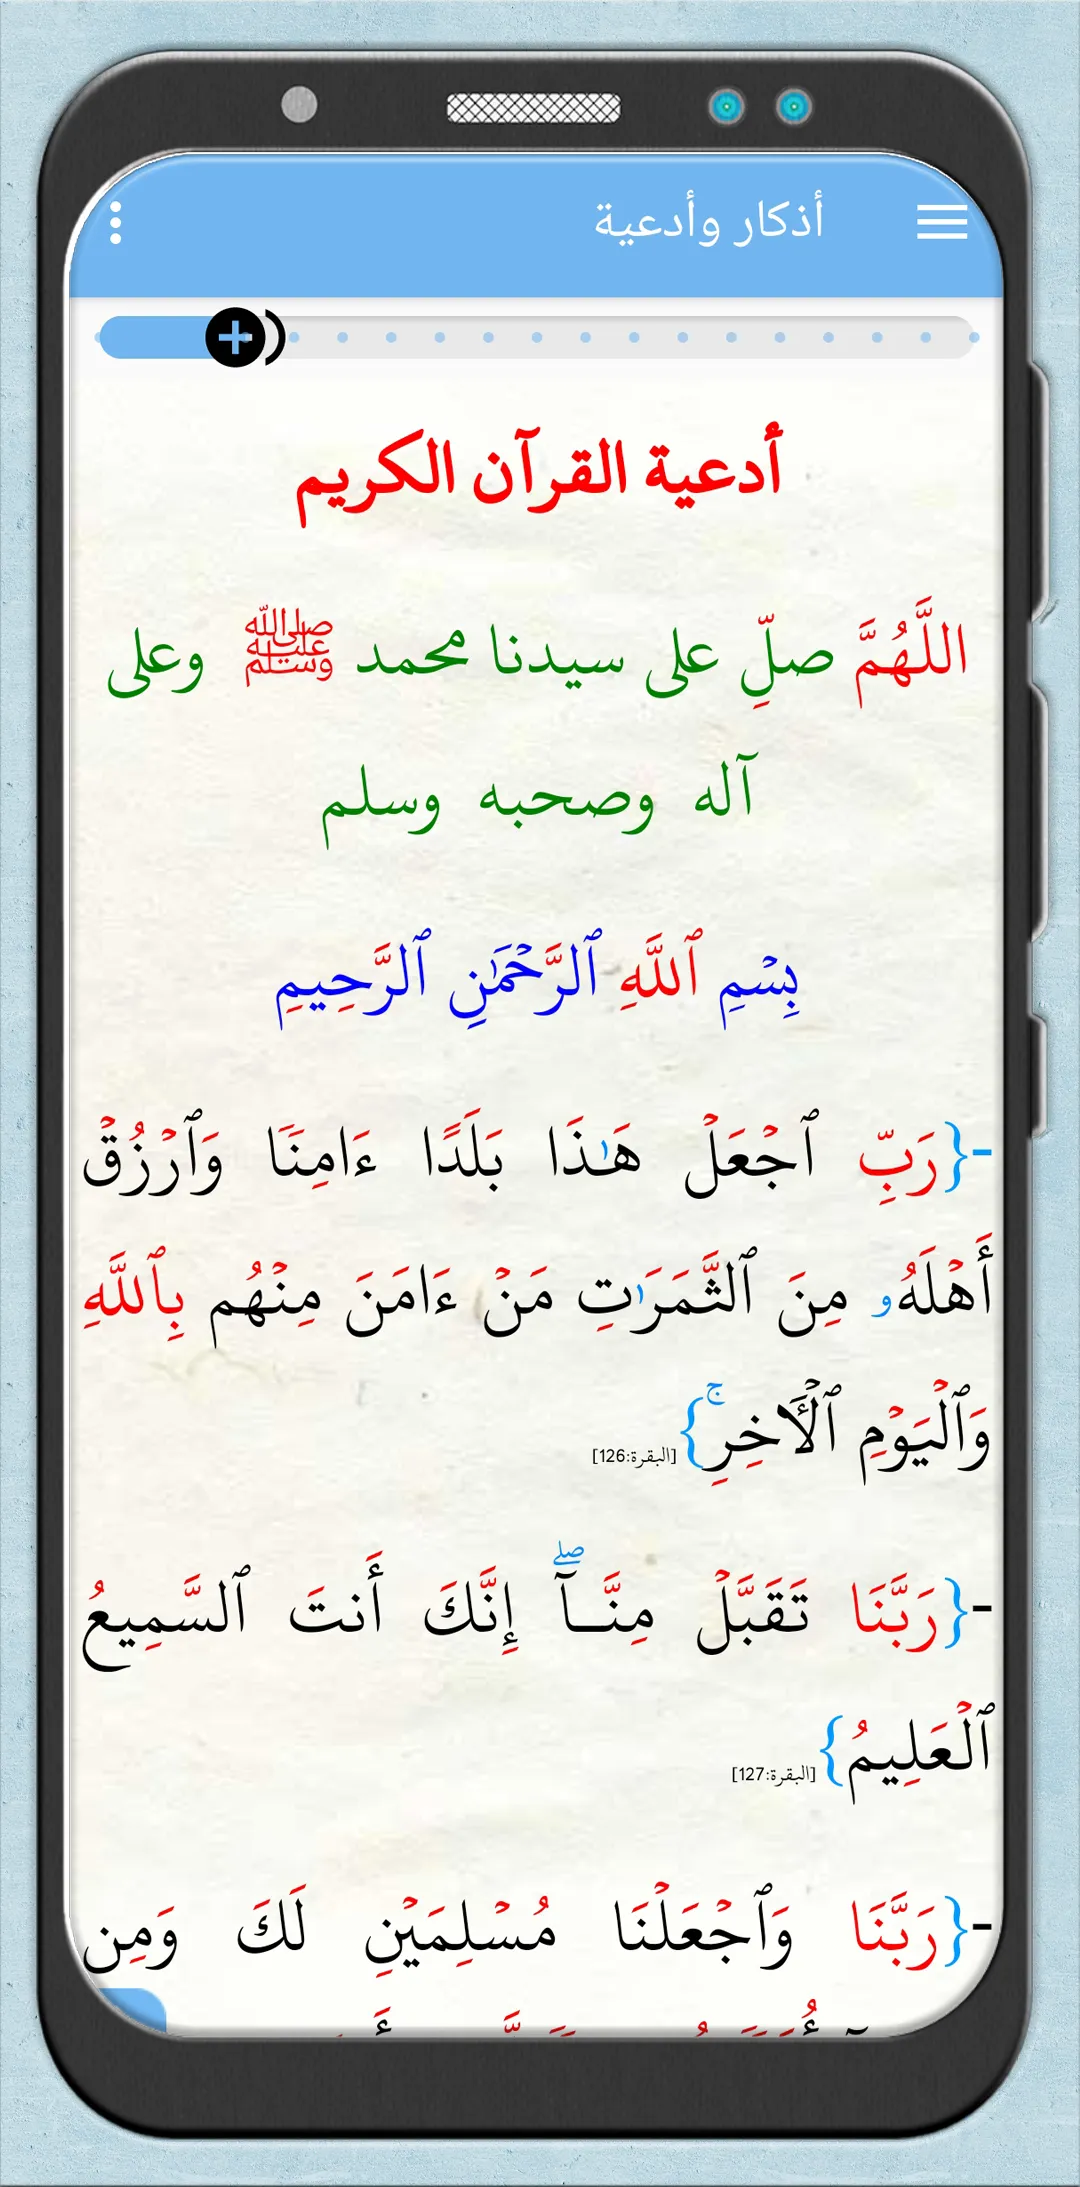 أذكار وأدعية
أدعية القرآن الكريم
اللَّهُمَّ صلِّ على سيدنا محمد ﷺ وعلى
آله وصحبه وسلم
بِسْمِ ٱللَّهِ ٱلرَّحْمَٰنِ ٱلرَّحِيمِ
-{رَبِّ ٱجْعَلْ هَٰذَا بَلَدًا ءَامِنَٗا وَٱرْزُقْ
أَهْلَهُۥ مِنَ ٱلثَّمَرَٰتِ مَنْ ءَامَنَ مِنْهُم بِٱللَّهِ
وَٱلْيَوْمِ ٱلْأَٓخِرِۚ} [البقرة:126]
-{رَبَّنَا تَقَبَّلْ مِنَّـآۖ إِنَّكَ أَنتَ ٱلسَّمِيعُ
ٱلْعَلِيمُ} [البقرة:127]
-{رَبَّنَا وَٱجْعَلْنَا مُسْلِمَيْنِ لَكَ وَمِن